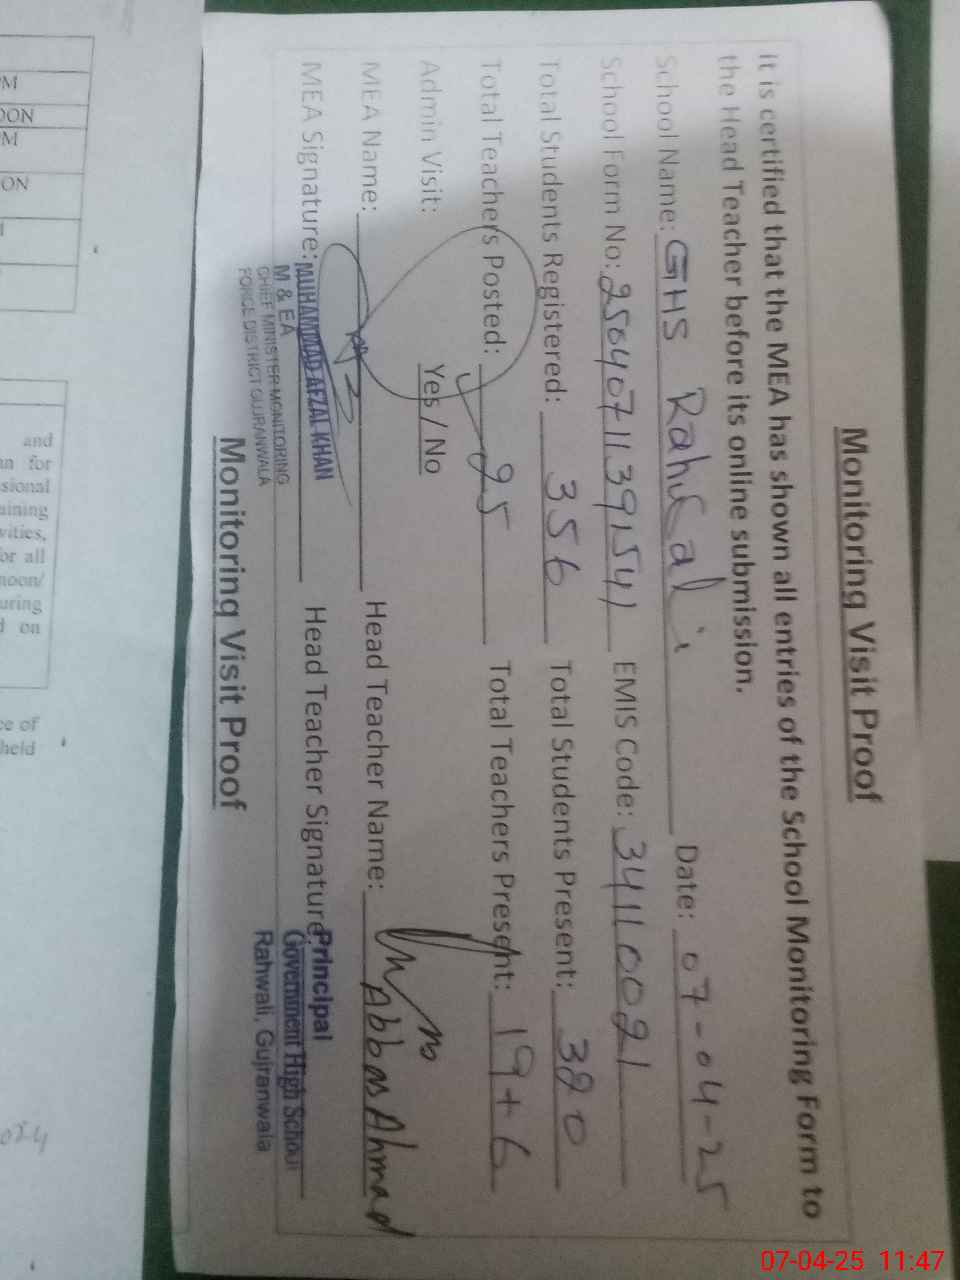 Monitoring Visit Proof
It is certified that the MEA has shown all entries of the School Monitoring Form to
the Head Teacher before its online submission.
School Name: GHS Rahwali Date: 07-04-25
School Form No: 2504071139154 EMIS Code: 34110021
Total Students Registered: 356 Total Students Present: 320
Total Teachers Posted: 25 Total Teachers Present: 19+6
Admin Visit: Yes / No
MEA Name: Head Teacher Name: Abbas Ahmad
MEA Signature: Head Teacher Signature
MUHAMMAD AFZAL KHAN
M & EA
CHIEF MINISTER MONITORING
FORCE DISTRICT GUJRANWALA
Principal
Government High School
Rahwali, Gujranwala
Monitoring Visit Proof
and
for
sional
aining
vities,
or all
noon/
uring
on
ce of
held
07-04-25 11:47